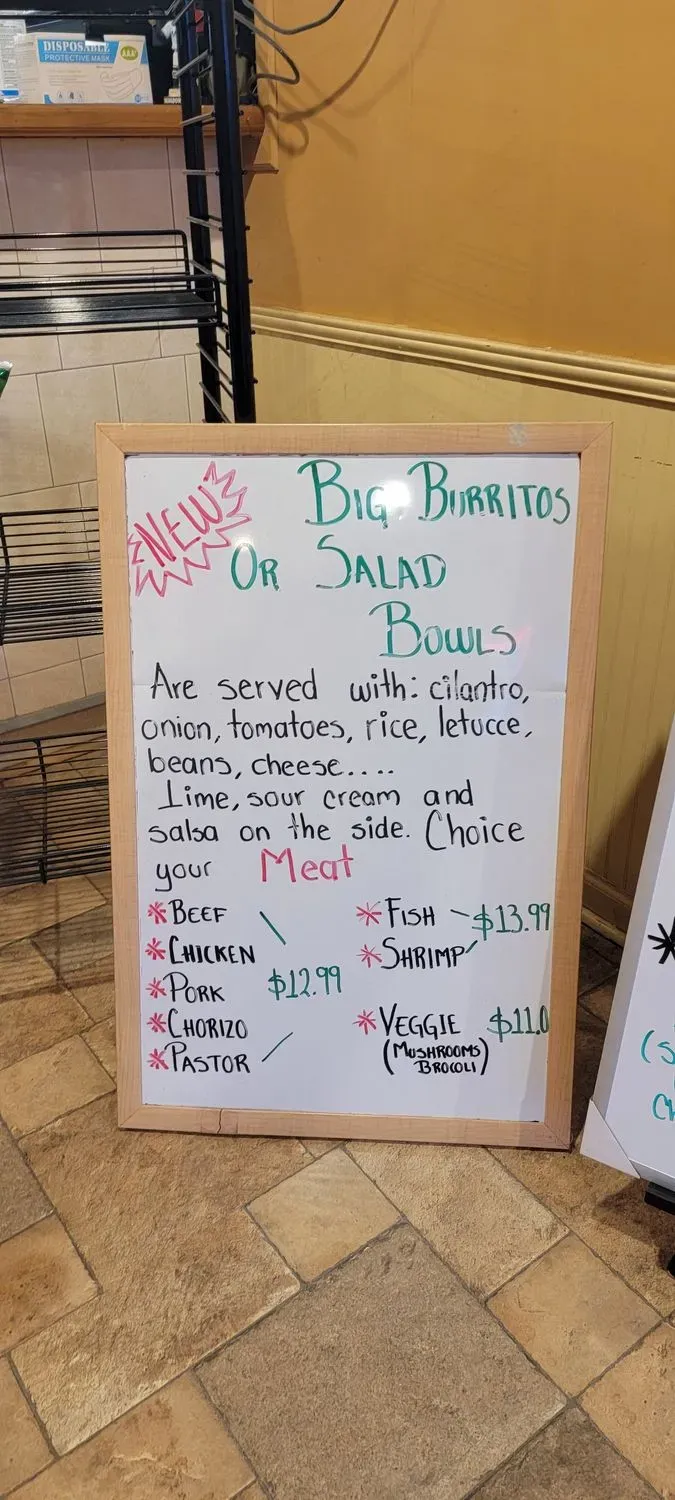 DISPOSABLE
PROTECTIVE MASK
NEW
BIG BURRITOS
OR SALAD
BOWLS
Are served with: cilantro,
onion, tomatoes, rice, letucce,
beans, cheese....
Lime, sour cream and
salsa on the side. Choice
your Meat
*BEEF
*CHICKEN
*PORK $12.99
*CHORIZO
*PASTOR
*FISH - $13.99
*SHRIMP
*VEGGIE $11.0
(MUSHROOMS
BROCOLI)